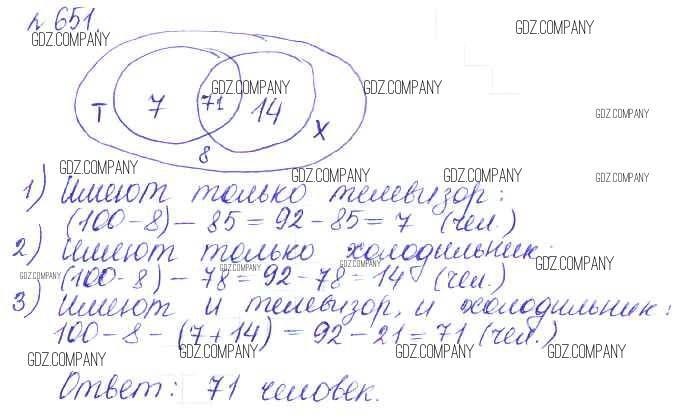 № 651.
GDZ.COMPANY GDZ.COMPANY
GDZ.COMPANY GDZ.COMPANY
Т 7 71 14 Х
GDZ.COMPANY
8
GDZ.COMPANY GDZ.COMPANY GDZ.COMPANY GDZ.COMPANY
1) Имеют только телевизор:
(100-8) - 85 = 92 - 85 = 7 (чел.)
2) Имеют только холодильник:
GDZ.COMPANY GDZ.COMPANY GDZ.COMPANY GDZ.COMPANY
(100-8) - 78 = 92 - 78 = 14 (чел.)
3) Имеют и телевизор, и холодильник:
100 - 8 - (7 + 14) = 92 - 21 = 71 (чел.)
GDZ.COMPANY GDZ.COMPANY GDZ.COMPANY GDZ.COMPANY
Ответ: 71 человек.